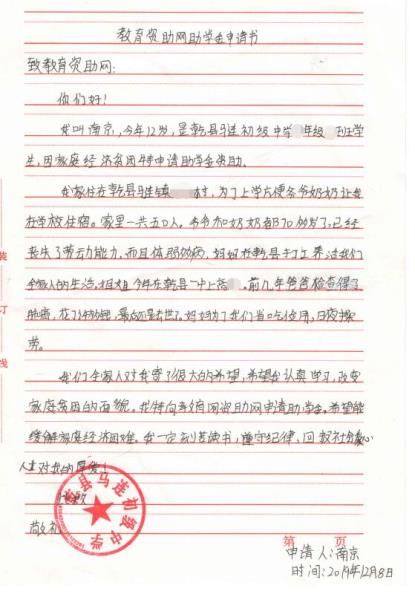 教育资助网助学金申请书
致教育资助网:
你们好!
我叫南京,今年12岁,是乾县马连初级中学 年级 班学
生,因家庭经济贫困特申请助学金资助。
我家住在乾县马连镇 村,为了上学方便爷爷奶奶让我
在学校住宿。家里一共五口人。爷爷和奶奶都70岁了,已经
丧失了劳动能力,而且体弱多病,妈妈在乾县打工养活我们
全家人的生活,姐姐今年在乾县一中上高 。前几年爸爸检查得了
癌,花了,最后还是去世了。妈妈为了我们省吃俭用,日夜操
劳。
我们全家人对我寄了很大的希望,希望我认真学习,改变
家庭贫困的面貌。我特向教育资助网申请助学金。希望能
缓解家庭经济困难。我一定刻苦读书,遵守纪律,回报社会爱心
人士对我的厚爱!
此致
敬礼
乾县马连初级中学
第 页
申请人:南京
时间:2019年12月8日
装
订
线